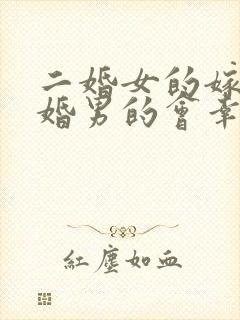 二婚女的嫁
婚男的會幸
紅塵如血